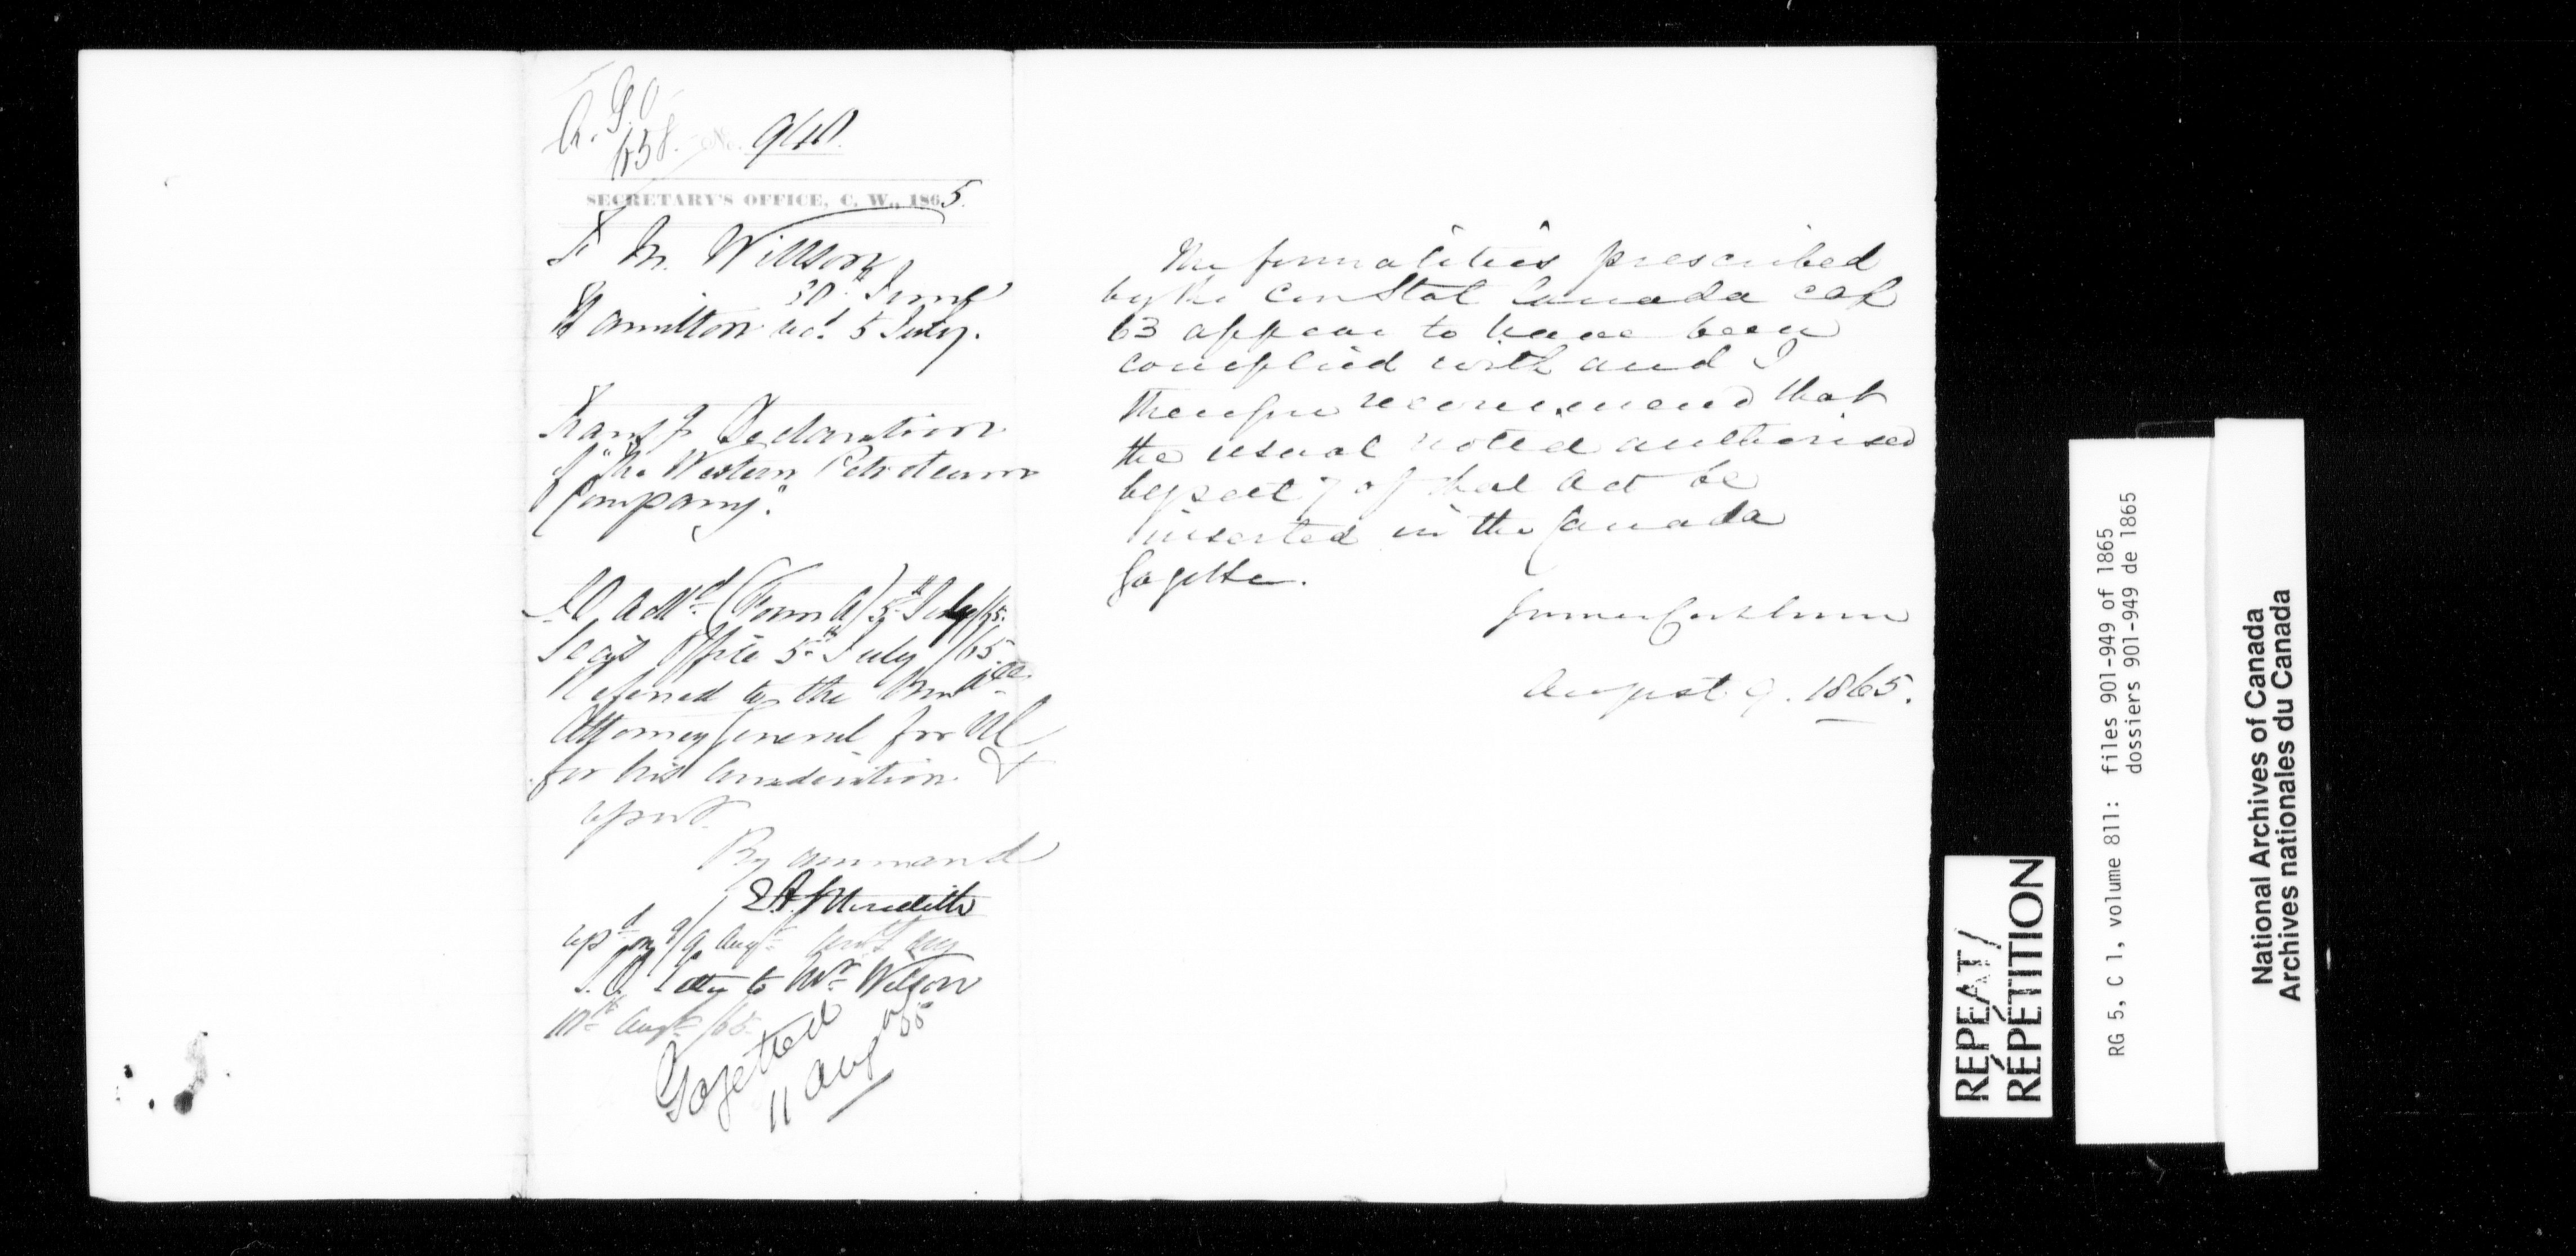 A.G.O.
658. No. 940.
SECRETARY'S OFFICE, C. W., 1865.
T M. Willson
30th June
Hamilton recd 5 July.
Transg. Declaration
of "The Western Petroleum
Company."
Ackd (Form A) 5th July/65.
Secy's Office 5th July /65.
Referred to the Honble
Attorney General for UC
for his consideration &
report.
By command
E. A. Meredith
repd on 9/9 Augt
S.O. Letter to Mr Willson
10th Augt /65.
Gazetted
11 Aug
The formalities prescribed
by the Con Stat Canada cap
63 appear to have been
complied with and I
therefore recommend that
the usual notice authorised
by sect 7 of that Act be
inserted in the Canada
Gazette.
James Cockburn
August 9. 1865.
REPEAT/
RÉPÉTITION
RG 5, C 1, volume 811: files 901-949 of 1865
dossiers 901-949 de 1865
National Archives of Canada
Archives nationales du Canada